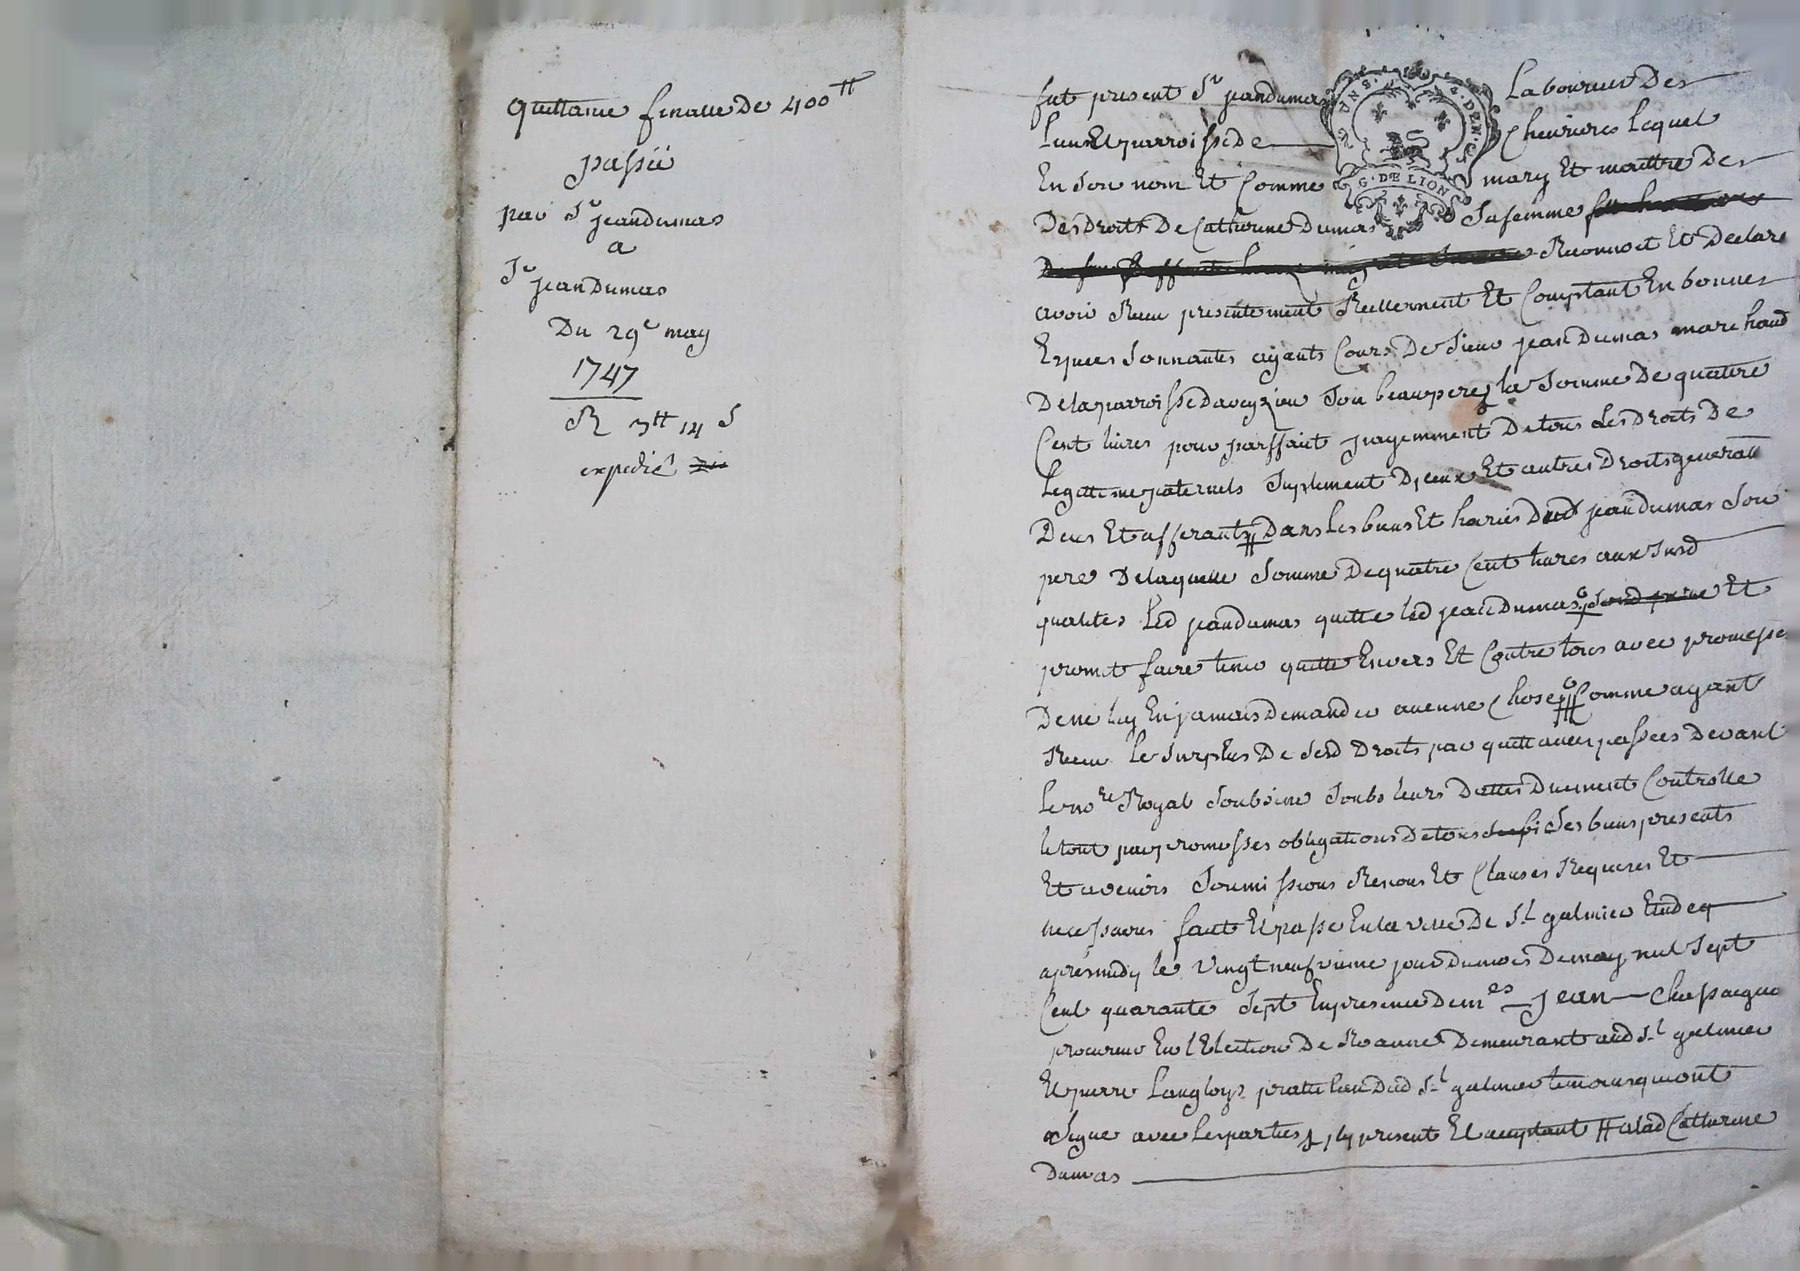 Quittance finalle De 400ᵗᵗ
passée
par Sʳ jean dumas
a
Sʳ jean Dumas
Du 29ᵉ may
1747
R 3ᵗᵗ 14 S
expedié
fut present Sʳ jean dumas Laboureur Des
Lieu Et parroisse de Chevrieres Lequel
En son nom Et Comme mary Et maittre Des
Des Droits De Catherine Dumas Sa femme
Reconnoit Et Declare
avoir Receu presentement Reellement Et Comptant En bonnes
Especes Sonnantes ayants Cours De Sieur jean Dumas marchand
De la parroisse daveyzieu Son beaupere la Somme De quattre
Cent livres pour parffait payemment De tous Les Droits De
Legittime paternels Suplement D'jceux Et autres Droits generaux
Deus Et afferants Dans Les biens Et hoiries Dud jean dumas Son
pere De laquelle Somme De quatre Cent livres aux Susd
qualités Led jean dumas quitte led jean Dumas Et
promet faire tenir quitte Envers Et Contre tous avec promesse
De ne luy En jamais demander aucune Chose Comme ayant
Receu Le Surplus De Sesd Droits par quittances passées Devant
Le noʳᵉ Royal Soubsigné Soubs leurs Dattes Duement Controllé
le tout par promesses obligations De tous Ses biens presents
Et avenirs Soumissions Renons Et Clauses Requises Et
necessaires fait Et passé En la ville De Sᵗ galmier Etude
apres midy le Vingt neufvieme jour Du mois De may mil Sept
Cent quarante Sept En presence De mᵉˢ Jean Chassaigne
procureur En l'Election De Roanne Demeurant aud Sᵗ galmier
Et pierre Langloys praticien Dud Sᵗ galmier temoins qui ont
Signé avec Les parties jcy present Et acceptant # a lad Catherine
Dumas
G. DE LION